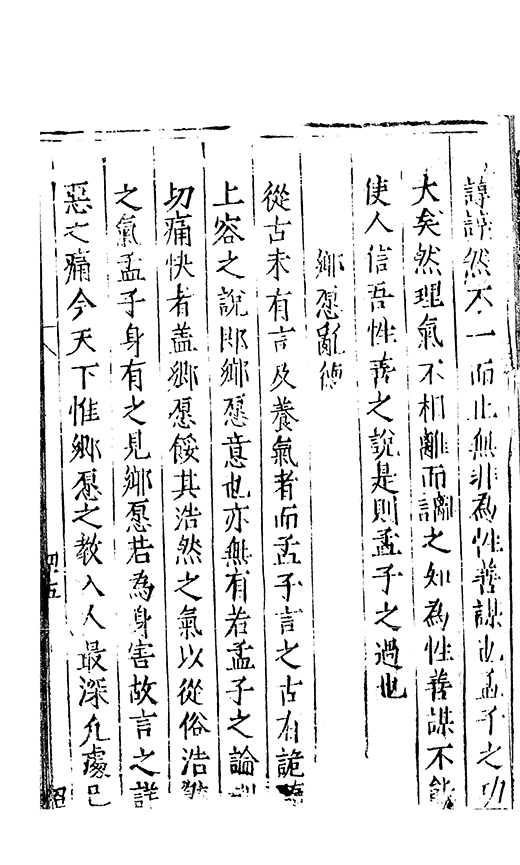 諄諄然不一而止無非為性善謀也孟子之功
大矣然理氣不相離而離之如為性善謀不能
使人信吾性善之說是則孟子之過也
鄉愿亂德
從古未有言及養氣者而孟子言之古有詭
上容之說即鄉愿意也亦無有若孟子之論
切痛快者盖鄉愿餒其浩然之氣以從俗浩
之氣孟子身有之見鄉愿若為身害故言之詳
惡之痛今天下惟鄉愿之教入人最深凢處已
四五